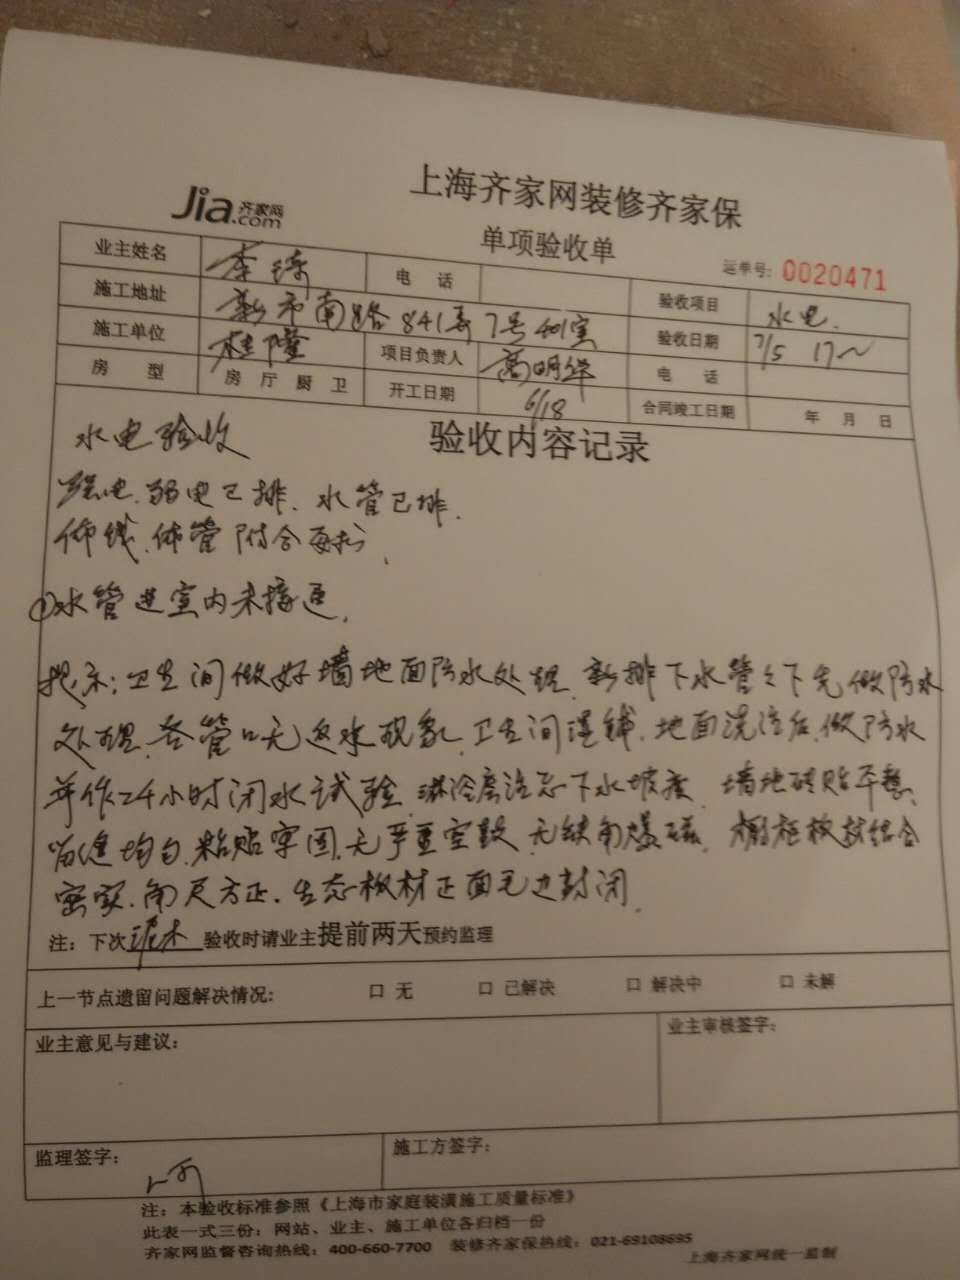 上海齐家网装修齐家保
Jia.com 齐家网
单项验收单
运单号: 0020471
业主姓名 李琦 电 话 验收项目 水电.
施工地址 新市南路841弄7号 室 验收日期 7/5 17~
施工单位 桂隆 项目负责人 高明华 电 话
房 型 房 厅 厨 卫 开工日期 6/18 合同竣工日期 年 月 日
水电验收 验收内容记录
强电.弱电已排.水管已排.
佈线.佈管附合要求.
①水管进室内未接通.
提示:卫生间做好墙地面防水处理.新排下水管之下先做防水
处理.各管口无返水现象.卫生间 地面洗 后.做防水
并作24小时闭水试验.淋浴房注意下水坡度.墙地砖贴平整.
留缝均匀.粘贴牢固.无严重空鼓.无缺角爆磁.橱柜板材结合
密实.角尺方正.生态板材正面毛边封闭.
注: 下次 泥木 验收时请业主提前两天预约监理
上一节点遗留问题解决情况: 口 无 口 已解决 口 解决中 口 未解
业主意见与建议: 业主审核签字:
监理签字: 施工方签字:
注: 本验收标准参照《上海市家庭装潢施工质量标准》
此表一式三份: 网站、业主、施工单位各归档一份
齐家网监督咨询热线: 400-660-7700 装修齐家保热线: 021-69108695
上海齐家网统一监制